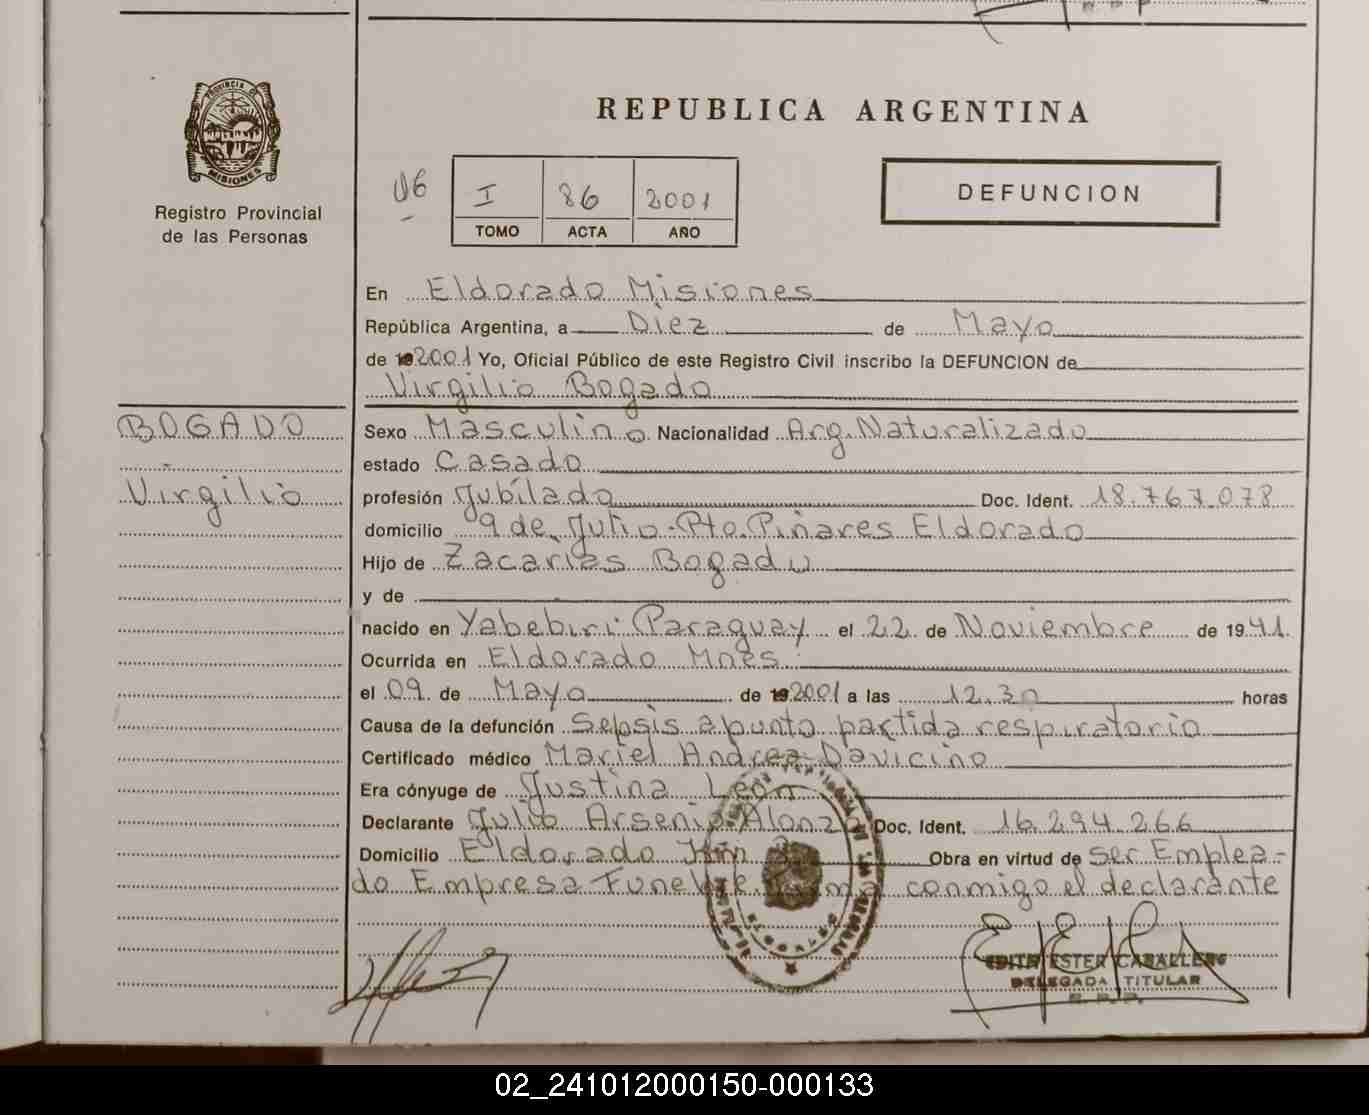 PROVINCIA DE
MISIONES
Registro Provincial
de las Personas
REPUBLICA ARGENTINA
06
I 86 2001
TOMO ACTA AÑO
DEFUNCION
En Eldorado Misiones
República Argentina, a Diez de Mayo
de 192001 Yo, Oficial Público de este Registro Civil inscribo la DEFUNCION de
Virgilio Bogado
BOGADO
Virgilio
Sexo Masculino Nacionalidad Arg. Naturalizado
estado Casado
profesión Jubilado Doc. Ident. 18.767.078
domicilio 9 de Julio-Pto. Piñares Eldorado
Hijo de Zacarias Bogado
y de
nacido en Yabebiri Paraguay el 22 de Noviembre de 1941.
Ocurrida en Eldorado Mnes
el 09 de Mayo de 192001 a las 12.30 horas
Causa de la defunción Sepsis a punto partida respiratorio
Certificado médico Mariel Andrea Davicino
Era cónyuge de Justina León
Declarante Julio Arsenio Alonzo Doc. Ident. 16.294.266
Domicilio Eldorado Km Obra en virtud de ser Emplea-
do Empresa Funebre Firma conmigo el declarante
EDITH ESTER CABALLERO
DELEGADA TITULAR
R. P. P.
02_241012000150-000133